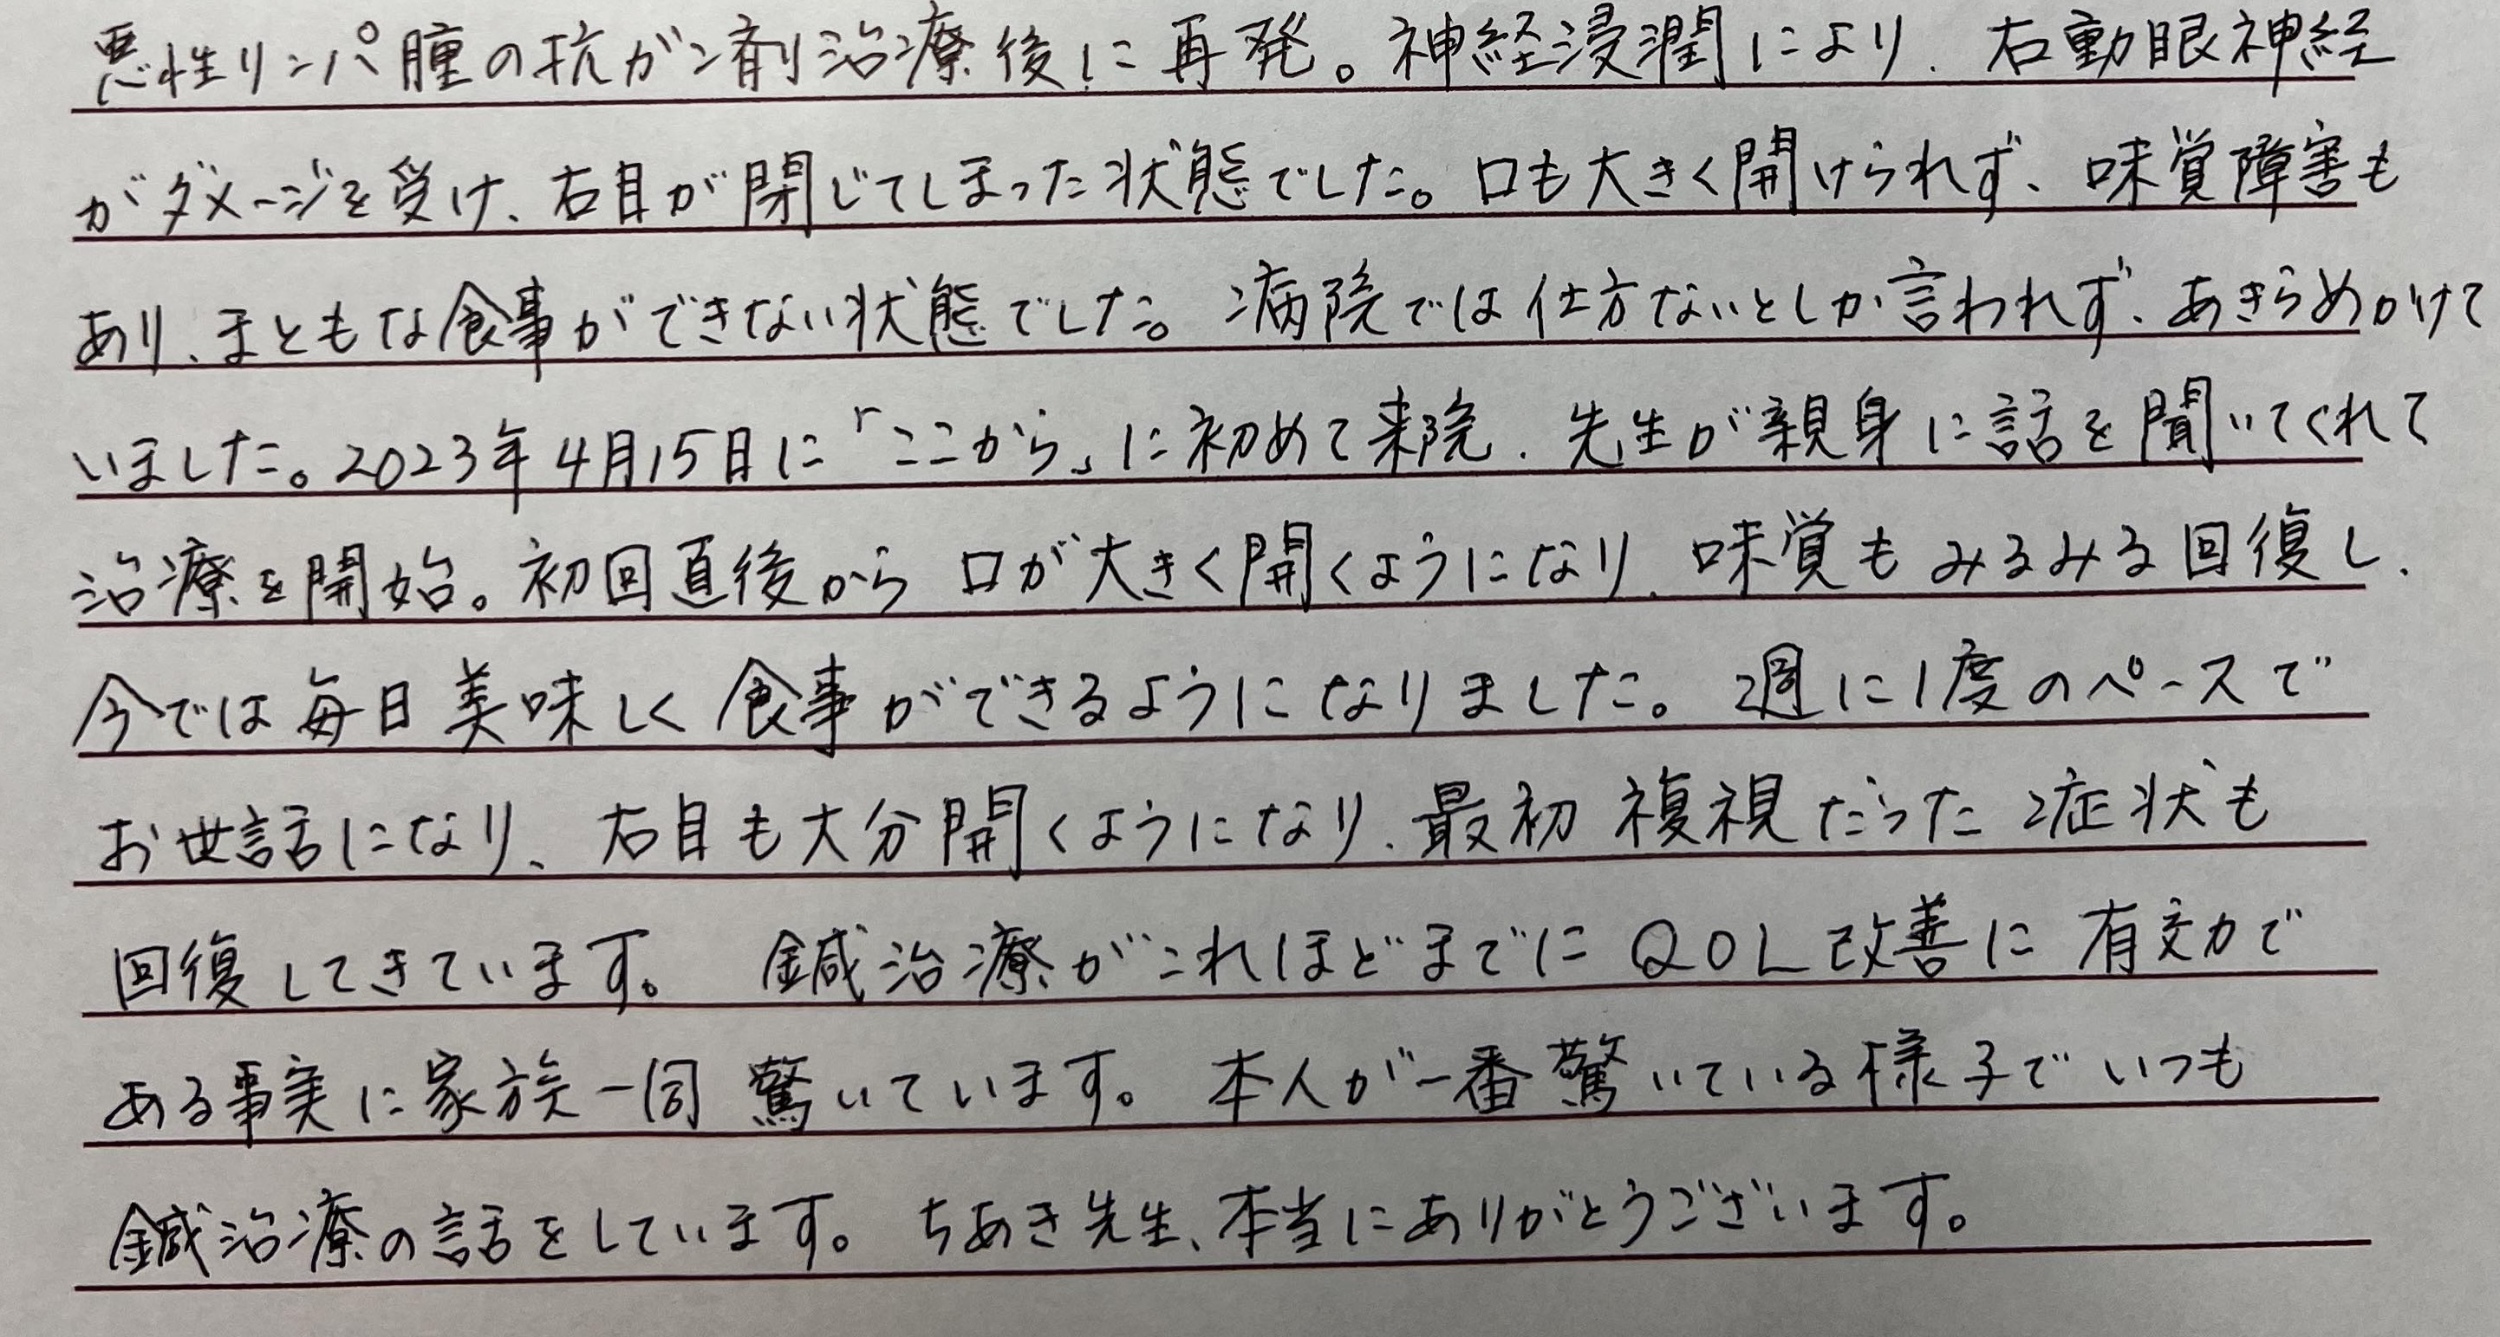 悪性リンパ腫の抗ガン剤治療後に再発。神経浸潤により、右動眼神経
がダメージを受け、右目が閉じてしまった状態でした。口も大きく開けられず、味覚障害も
あり、まともな食事ができない状態でした。病院では仕方ないとしか言われず、あきらめかけて
いました。2023年4月15日に「ここから」に初めて来院、先生が親身に話を聞いてくれて
治療を開始。初回直後から口が大きく開くようになり、味覚もみるみる回復し、
今では毎日美味しく食事ができるようになりました。週に1度のペースで
お世話になり、右目も大分開くようになり、最初複視だった症状も
回復してきています。鍼治療がこれほどまでにQOL改善に有効で
ある事実に家族一同驚いています。本人が一番驚いている様子でいつも
鍼治療の話をしています。ちあき先生、本当にありがとうございます。